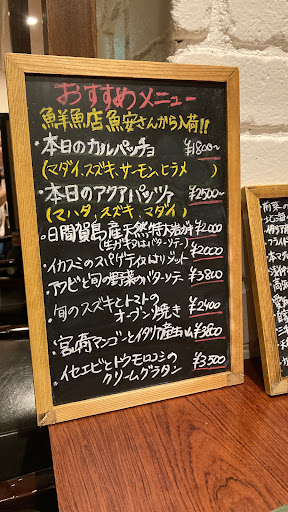 おすすめメニュー
鮮魚店魚安さんから入荷!!
・本日のカルパッチョ ¥1800〜
(マダイ、スズキ、サーモン、ヒラメ )
・本日のアクアパッツァ ¥2500〜
(マハタ、スズキ、マダイ)
・日間賀島産天然特大岩ガキ ¥2000
(生ガキ又はバターソテー)
・イカスミのスパゲティ又はリゾット ¥2000
・アワビと旬の野菜のバターソテー ¥3800
・旬のスズキとトマトの
オーブン焼き ¥2400
・宮崎マンゴーとイタリア産生ハム ¥3800
・イセエビとトウモロコシの
クリームグラタン ¥3500